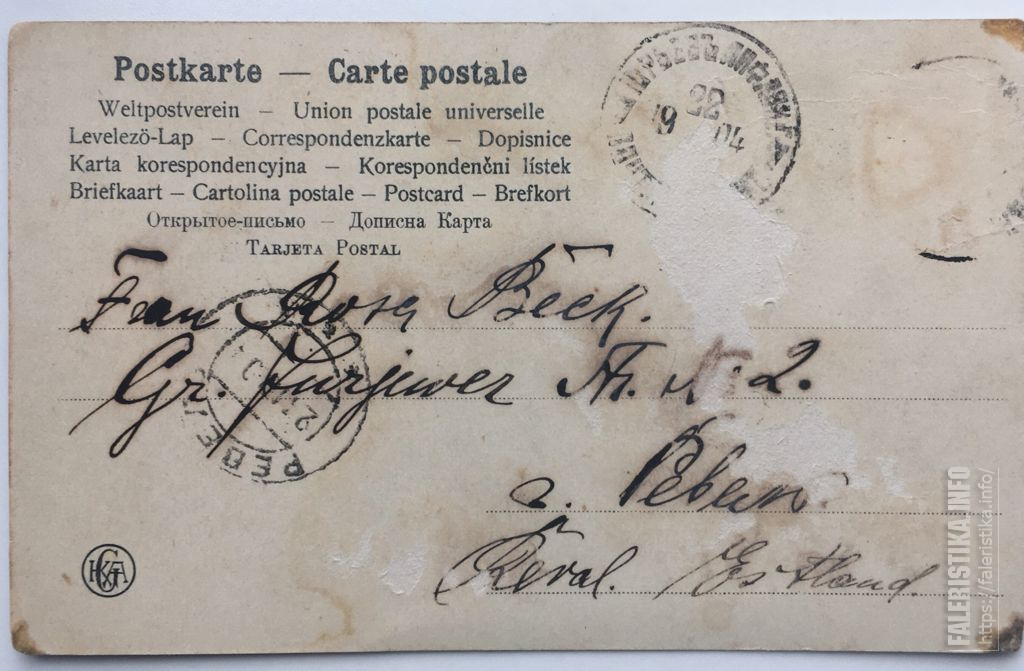 Postkarte — Carte postale
Weltpostverein – Union postale universelle
Levelező-Lap – Correspondenzkarte – Dopisnice
Karta korespondencyjna – Korespondenční lístek
Briefkaart – Cartolina postale – Postcard – Brefkort
Открытое-письмо – Дописна Карта
Tarjeta Postal
22
19 04
Frau Rosa Beck.
Gr. 2.
РЕВЕЛ
г. Ревель
Reval. Estland.
FALERISTIKA.INFO
https://faleristika.info/